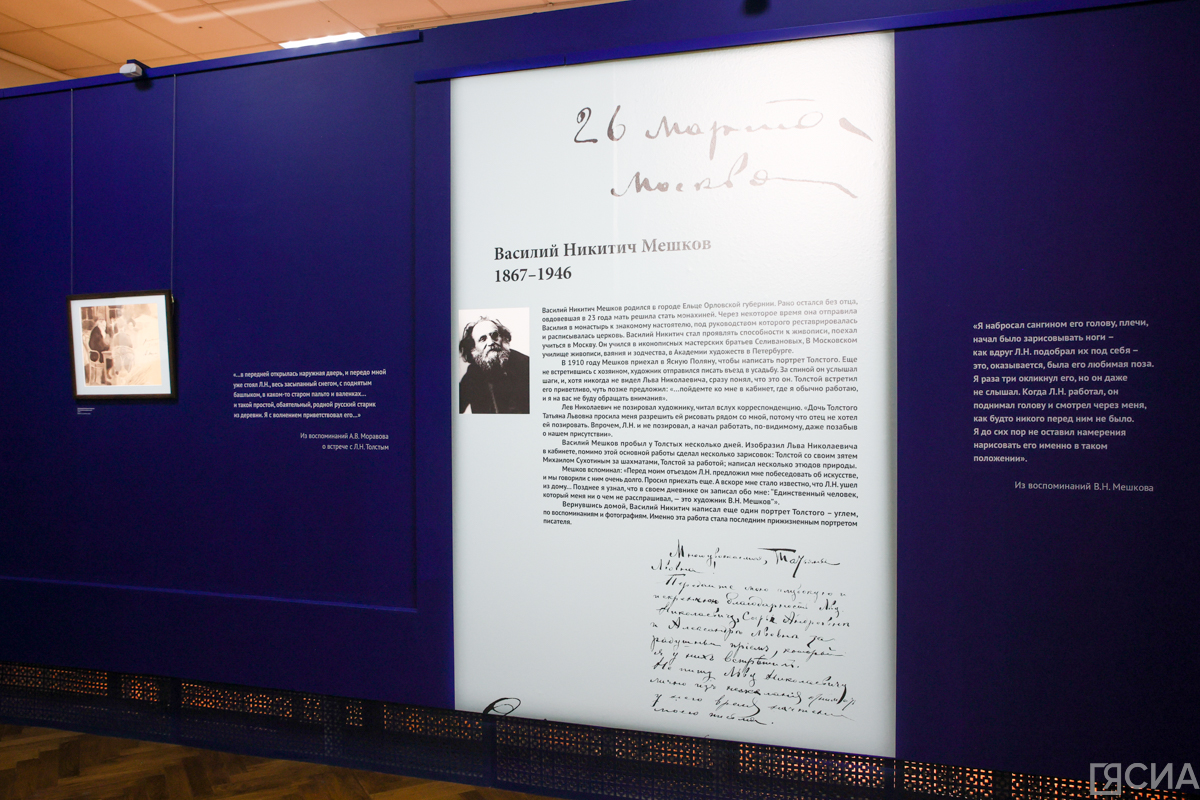 «...в передней открылась наружная дверь, и передо мной
уже стоял Л.Н., весь засыпанный снегом, с поднятым
башлыком, в каком-то старом пальто и валенках...
и такой простой, обаятельный, родной русский старик
из деревни. Я с волнением приветствовал его...»
Из воспоминаний А.В. Моравова
о встрече с Л.Н. Толстым
26 марта
Москва
Василий Никитич Мешков
1867–1946
Василий Никитич Мешков родился в городе Ельце Орловской губернии. Рано остался без отца,
овдовевшая в 23 года мать решила стать монахиней. Через некоторое время она отправила
Василия в монастырь к знакомому настоятелю, под руководством которого реставрировалась
и расписывалась церковь. Василий Никитич стал проявлять способности к живописи, поехал
учиться в Москву. Он учился в иконописных мастерских братьев Селивановых, В Московском
училище живописи, ваяния и зодчества, в Академии художеств в Петербурге.
В 1910 году Мешков приехал в Ясную Поляну, чтобы написать портрет Толстого. Еще
не встретившись с хозяином, художник отправился писать въезд в усадьбу. За спиной он услышал
шаги, и, хотя никогда не видел Льва Николаевича, сразу понял, что это он. Толстой встретил
его приветливо, чуть позже предложил: «...пойдемте ко мне в кабинет, где я обычно работаю,
и я на вас не буду обращать внимания».
Лев Николаевич не позировал художнику, читал вслух корреспонденцию. «Дочь Толстого
Татьяна Львовна просила меня разрешить ей рисовать рядом со мной, потому что отец не хотел
ей позировать. Впрочем, Л.Н. и не позировал, а начал работать, по-видимому, даже позабыв
о нашем присутствии».
Василий Мешков пробыл у Толстых несколько дней. Изобразил Льва Николаевича
в кабинете, помимо этой основной работы сделал несколько зарисовок: Толстой со своим зятем
Михаилом Сухотиным за шахматами, Толстой за работой; написал несколько этюдов природы.
Мешков вспоминал: «Перед моим отъездом Л.Н. предложил мне побеседовать об искусстве,
и мы говорили с ним очень долго. Просил приехать еще. А вскоре мне стало известно, что Л.Н. ушел
из дому... Позднее я узнал, что в своем дневнике он записал обо мне: "Единственный человек,
который меня ни о чем не расспрашивал, — это художник В.Н. Мешков"».
Вернувшись домой, Василий Никитич написал еще один портрет Толстого – углем,
по воспоминаниям и фотографиям. Именно эта работа стала последним прижизненным портретом
писателя.
Многоуважаемая, Татьяна
Львовна,
Передайте мою глубокую и
искреннюю благодарность Льву
Николаевичу, Софье Андреевне
и Александре Львовне за
радушный прием, который
я у них встретил.
Не пишу Льву Николаевичу
лично из нежелания
у него время чтением
моего письма.
«Я набросал сангином его голову, плечи,
начал было зарисовывать ноги –
как вдруг Л.Н. подобрал их под себя –
это, оказывается, была его любимая поза.
Я раза три окликнул его, но он даже
не слышал. Когда Л.Н. работал, он
поднимал голову и смотрел через меня,
как будто никого перед ним не было.
Я до сих пор не оставил намерения
нарисовать его именно в таком
положении».
Из воспоминаний В.Н. Мешкова
ЯСИА